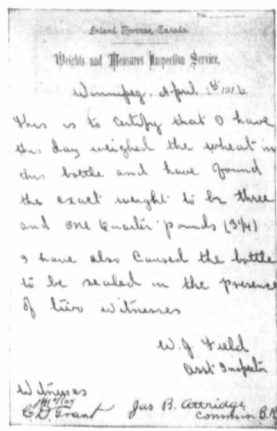 Inland Revenue, Canada.
Weights and Measures Inspection Service.
Winnipeg, April 1st 1912
This is to certify that I have
this day weighed the wheat in
this bottle and have found
the exact weight to be three
and one Quarter pounds (3¼)
I have also Caused the bottle
to be sealed in the presence
of two witnesses
W. J. Field
Asst Inspector
Witnesses
C. D. Grant Jas B. Attridge
Common B.R.